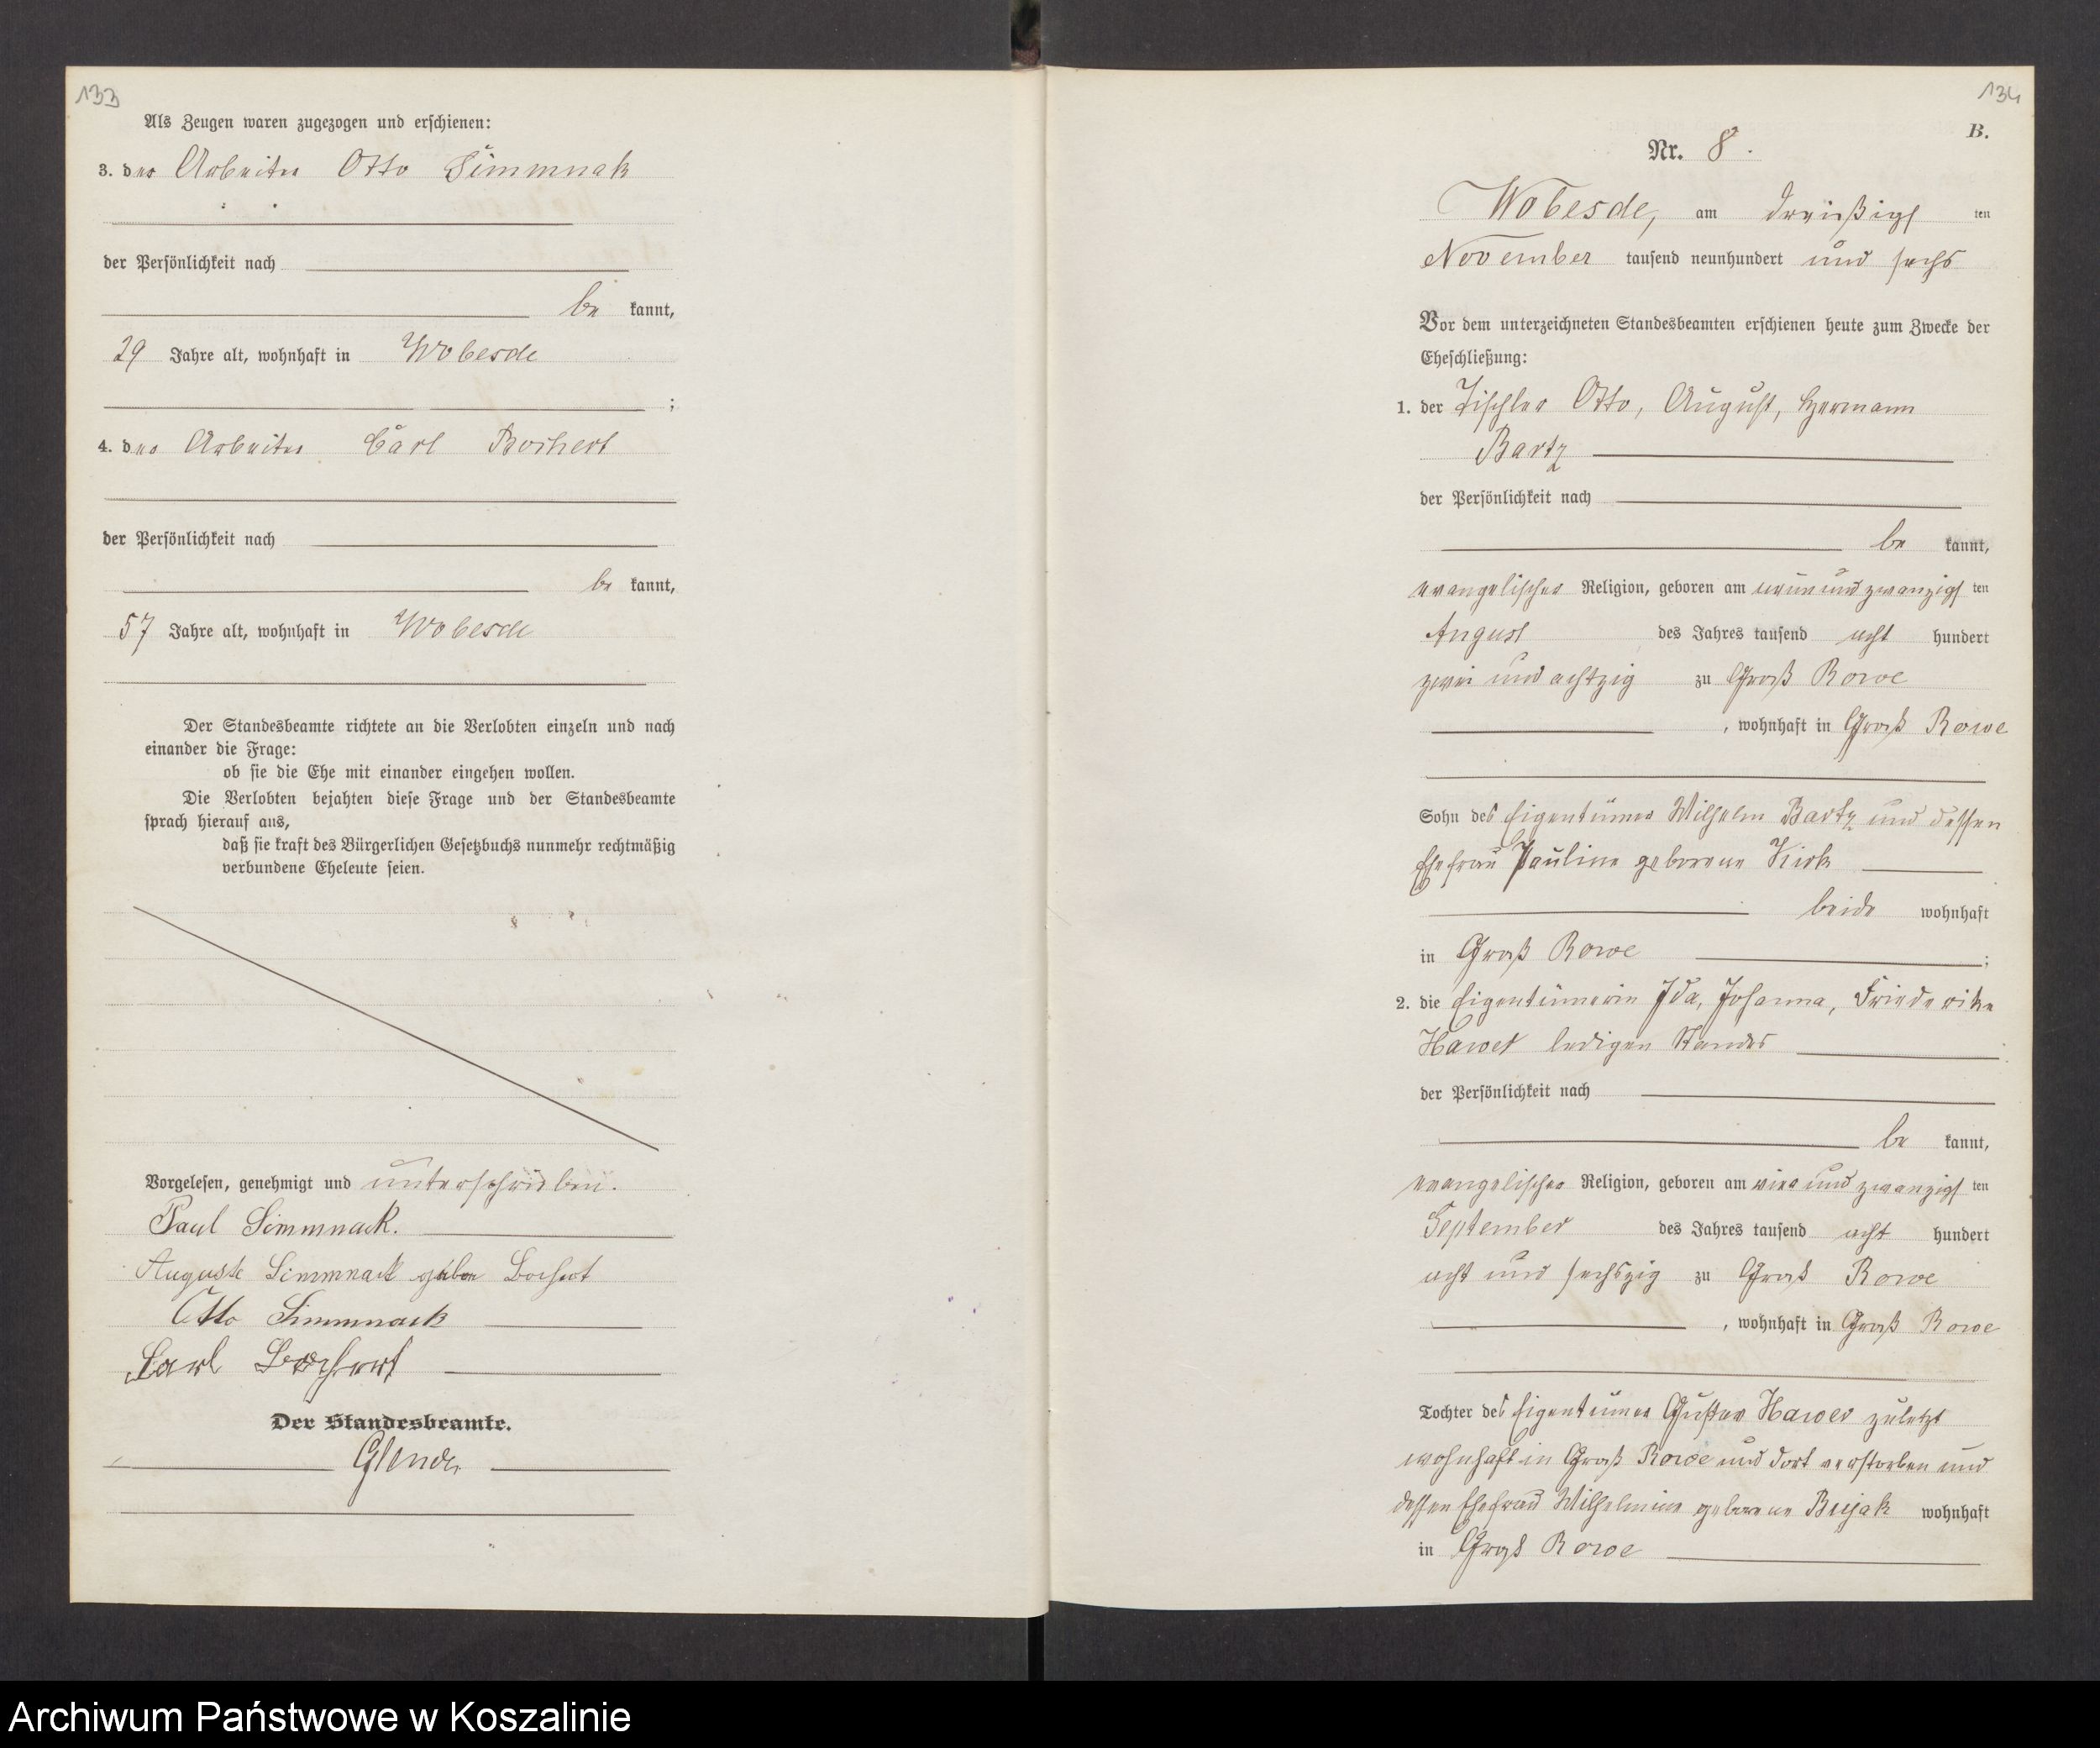 133
Als Zeugen waren zugezogen und erschienen:
3. der Arbeiter Otto Simmnak
der Persönlichkeit nach
be kannt,
29 Jahre alt, wohnhaft in Wobesde
;
4. der Arbeiter Carl Borhert
der Persönlichkeit nach
be kannt,
57 Jahre alt, wohnhaft in Wobesde
Der Standesbeamte richtete an die Verlobten einzeln und nach
einander die Frage:
ob sie die Ehe mit einander eingehen wollen.
Die Verlobten bejahten diese Frage und der Standesbeamte
sprach hierauf aus,
daß sie kraft des Bürgerlichen Gesetzbuchs nunmehr rechtmäßig
verbundene Eheleute seien.
Vorgelesen, genehmigt und unterschrieben.
Paul Simmnack.
Auguste Simmnack Borhert
Otto Simmnack
Carl Borhert
Der Standesbeamte.
134
B.
Nr. 8.
Wobesde, am dreißigst ten
November tausend neunhundert und sechs
Vor dem unterzeichneten Standesbeamten erschienen heute zum Zwecke der
Eheschließung:
1. der Tischler Otto, August, Hermann
Bartz
der Persönlichkeit nach
be kannt,
evangelischer Religion, geboren am neunundzwanzigst ten
August des Jahres tausend acht hundert
zwei und achtzig zu Groß Rowe
, wohnhaft in Groß Rowe
Sohn des Eigentümer Wilhelm Bartz und dessen
Ehefrau Pauline geborene Kirk
beide wohnhaft
in Groß Rowe ;
2. die Eigentümerin Ida, Johanna, Friederike
Hawer ledigen Standes
der Persönlichkeit nach
be kannt,
evangelischer Religion, geboren am vier und zwanzigst ten
September des Jahres tausend acht hundert
acht und sechszig zu Groß Rowe
, wohnhaft in Groß Rowe
Tochter des Eigentümer Gustav Hawer zuletzt
wohnhaft in Groß Rowe und dort verstorben und
dessen Ehefrau Wilhelmine geborene Bujak wohnhaft
in Groß Rowe
Archiwum Państwowe w Koszalinie